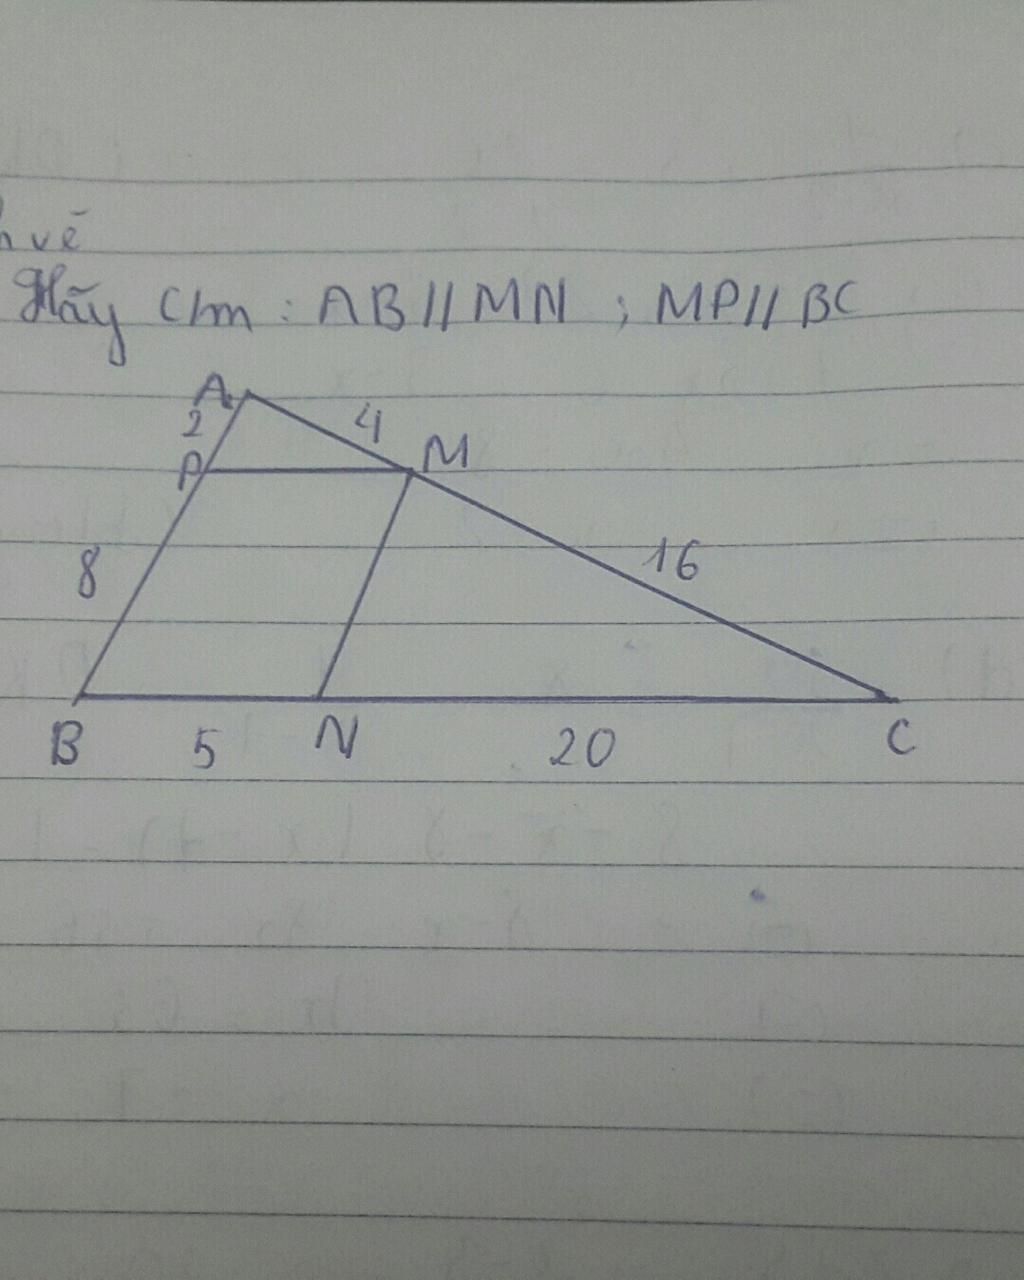 vẽ
Hãy C/m : AB // MN ; MP // BC
A
2
4
M
P
8
16
B
5
N
20
C